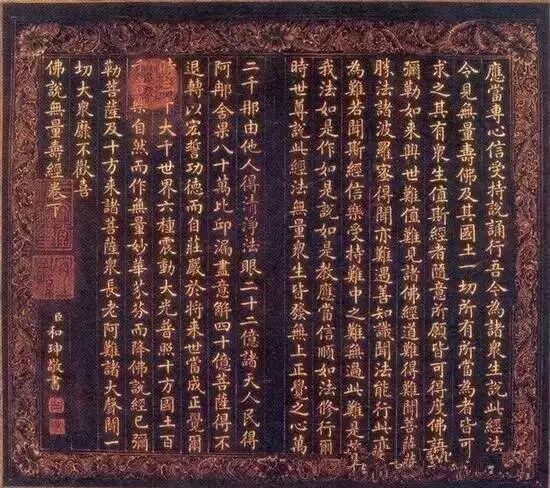 應當專心信受持說誦行吾今為諸衆生說此經法
今見無量壽佛及其國土一切所有所當為者皆可
求之其有衆生值斯經者隨意所願皆可得度佛語
彌勒如來興世難值難見諸佛經道難得難聞菩薩
勝法諸波羅蜜得聞亦難遇善知識聞法能行此亦
為難若聞斯經信樂受持難中之難無過此難是故
我法如是作如是說如是教應當信順如法修行爾
時世尊說此經法無量衆生皆發無上正覺之心萬
二千那由他人得清淨法眼二十二億諸天人民得
阿那含果八十萬比邱漏盡意解四十億菩薩得不
退轉以宏誓功德而自莊嚴於將來世當成正覺爾
時千大千世界六種震動大光普照十方國土百
樂自然而作無量妙華芬芬而降佛說經已彌
勒菩薩及十方來諸菩薩衆長老阿難諸大聲聞一
切大衆靡不歡喜
佛說無量壽經卷下
臣和珅敬書